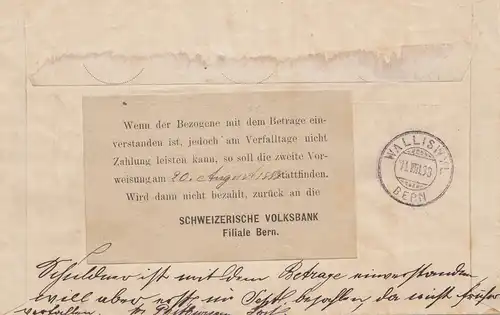 Wenn der Bezogene mit dem Betrage ein-
verstanden ist, jedoch am Verfalltage nicht
Zahlung leisten kann, so soll die zweite Vor-
weisung am 20. August stattfinden.
Wird dann nicht bezahlt, zurück an die
SCHWEIZERISCHE VOLKSBANK
Filiale Bern.
WALLISWYL
BERN
Schuldner ist mit dem Betrage einverstanden
will aber erst im Sept. bezahlen, da nicht früher
verfallen.